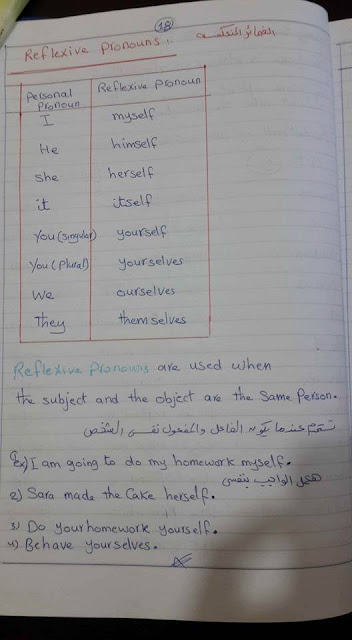 18
Reflexive Pronouns: الضمائر المنعكسه
Personal Pronoun Reflexive Pronoun
I myself
He himself
she herself
it itself
You (singular) yourself
You (Plural) yourselves
We ourselves
They themselves
Reflexive Pronouns are used when
the subject and the object are the Same Person.
تستخدم عندما يكون الفاعل والمفعول نفس الشخص
Ex) I am going to do my homework myself.
الواجب بنفسى
2) Sara made the Cake herself.
3) Do your homework yourself.
4) Behave yourselves.